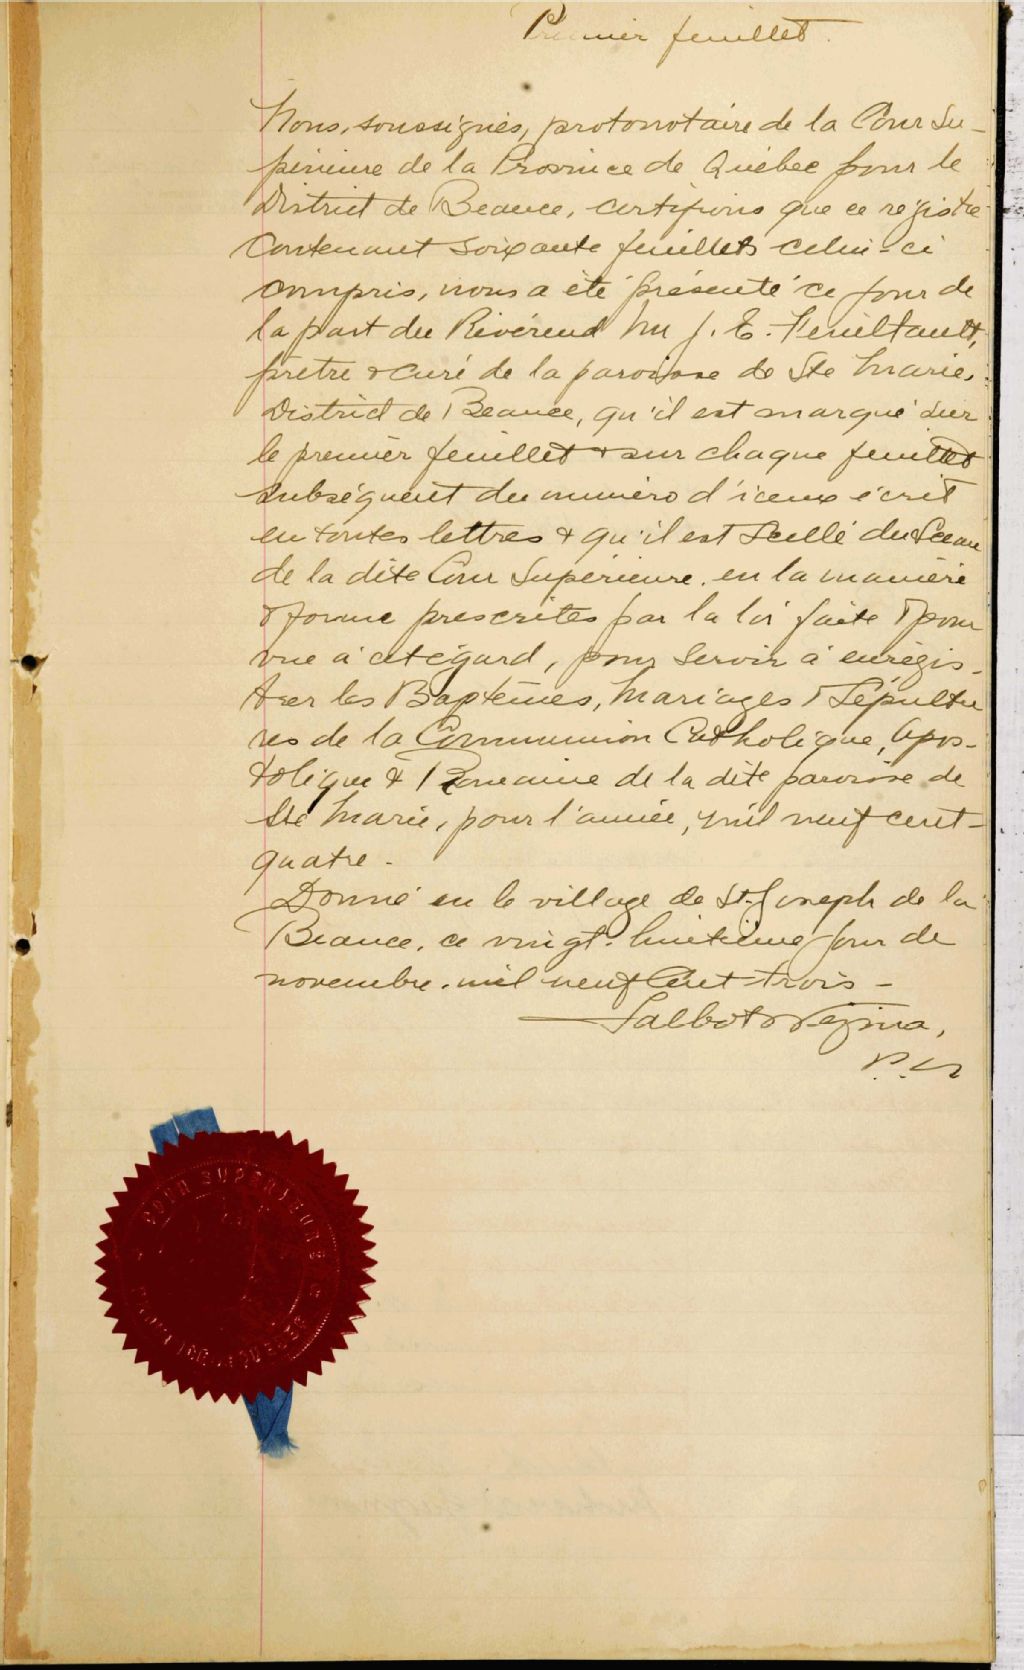 Premier feuillet.
Nous, soussignés, protonotaire de la Cour Su-
périeure de la Province de Québec pour le
District de Beauce, certifions que ce régistre
contenant soixante feuillets celui-ci
compris, nous a été présenté ce jour de
la part du Révérend Mr J. E. Feuiltault,
prêtre & curé de la paroisse de Ste Marie,
District de Beauce, qu'il est marqué sur
le premier feuillet & sur chaque feuillet
subséquent du numéro d'iceux écrit
en toutes lettres & qu'il est Scellé du Sceau
de la dite Cour Supérieure, en la manière
& forme prescrites par la loi faite & pour
vue à cet égard, pour servir à enrégis-
trer les Baptêmes, Mariages & Sépultu
res de la Communion Catholique, Apos-
tolique & Romaine de la dite paroisse de
Ste Marie, pour l'année, mil neuf cent-
quatre -
Donné en le village de St. Joseph de la
Beauce, ce vingt-huitième jour de
novembre, mil neuf Cent-trois -
Talbot & Vézina,
P. S.
COUR SUPERIEURE